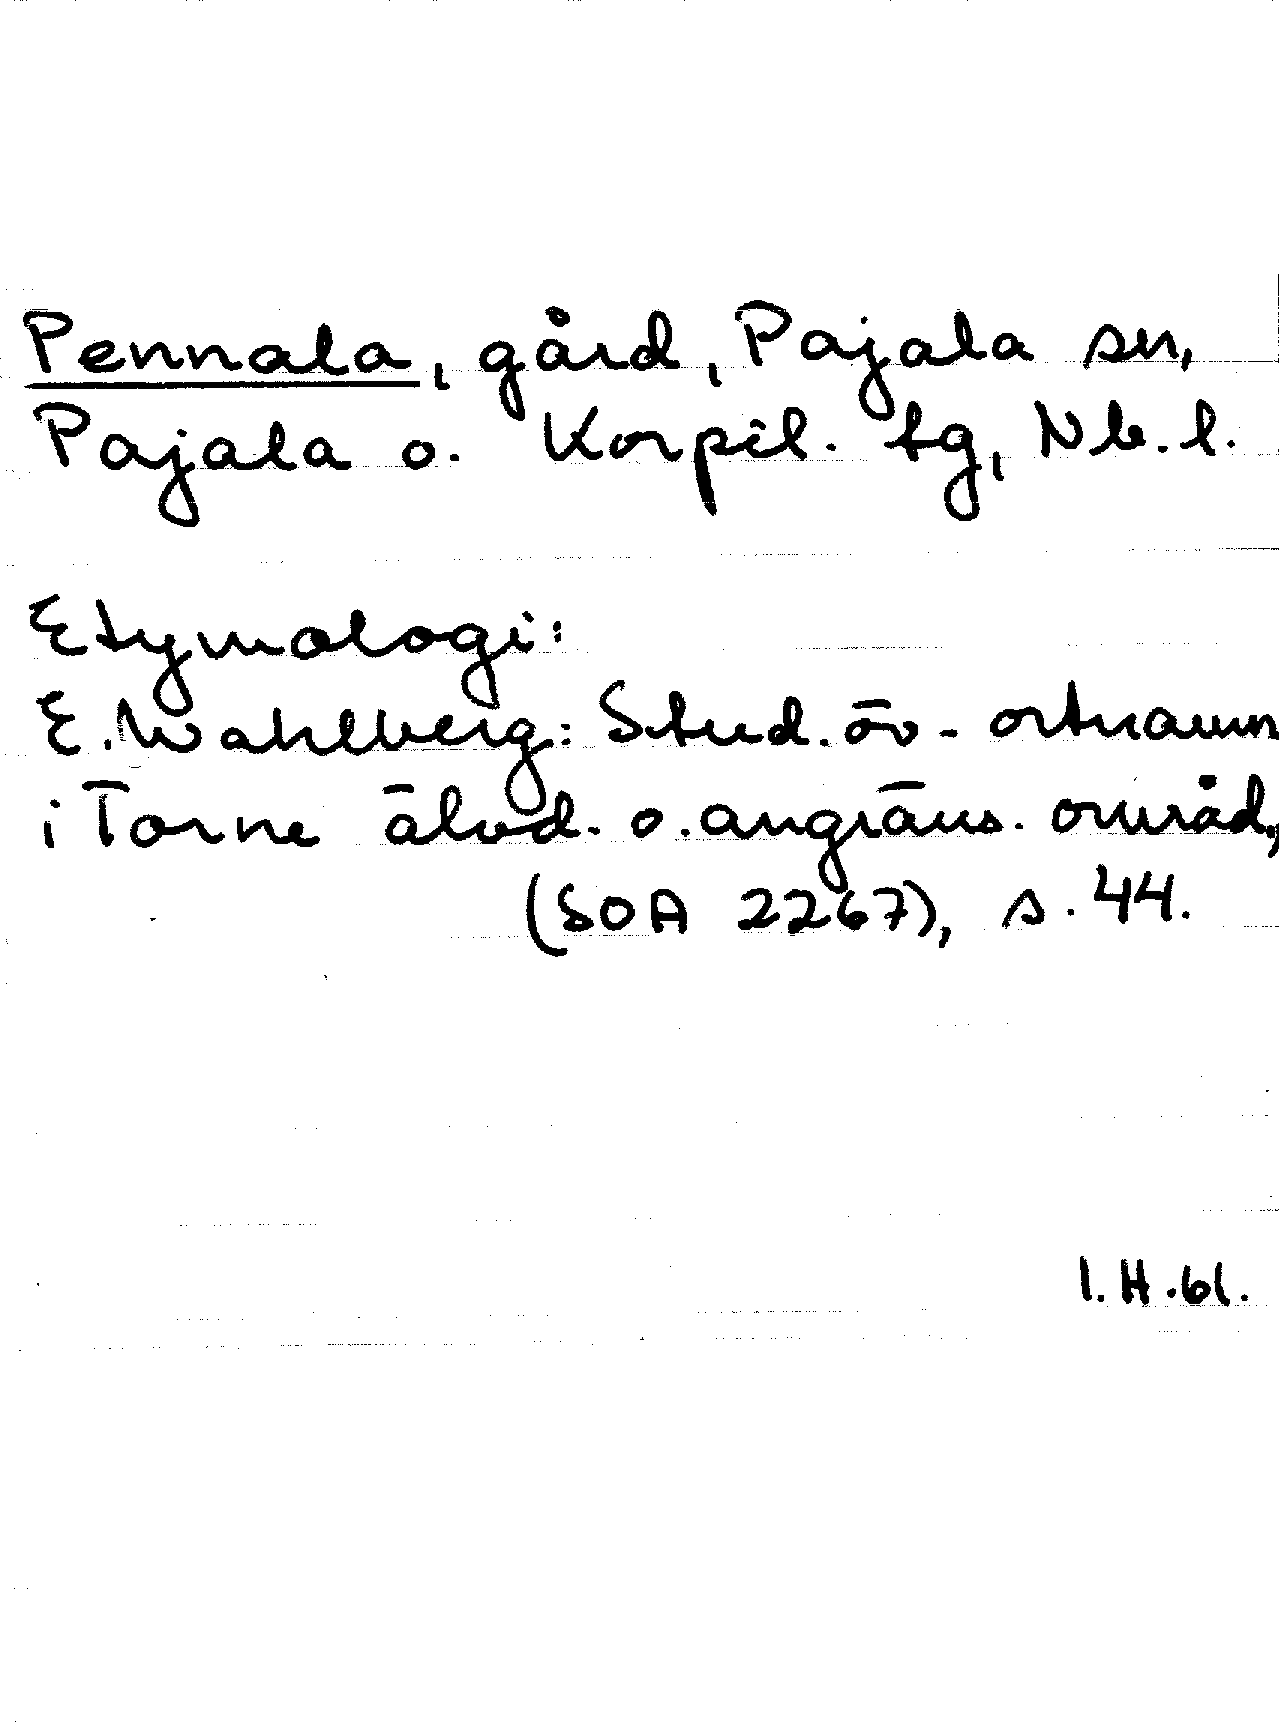 Pennala, gård, Pajala sn,
Pajala o. Korpil. tg, Nb. l.
Etymologi:
E. Wahlberg: Stud. öv- ortnamn
i Torne älvd. o. angräns. områd,
(SOA 2267), s. 44.
I. H. 61.